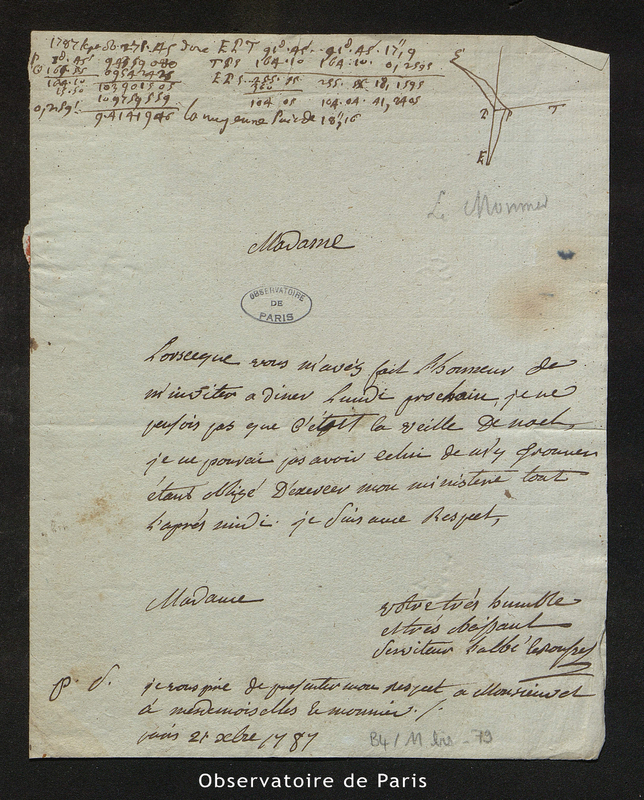 E P T 91°. 45. 91°. 45. 17",9
T P S 164. 10 164. 10. 0, 2595
E P S. 255. 55. 255. 55 18, 1595
360
104 05 104. 04. 41, 2405
la moyenne
S
P
T
E
Le Monnier
Madame
OBSERVATOIRE
DE
PARIS
Lorsceque vous m'avés fait l'honneur de
m'inviter a diner Lundi prochain, je ne
pensois pas que c'étoit la veille de noel,
je ne pourai pas avoir celui de m'y trouver
étant obligé d'exercer mon ministere tout
l'après midi. je suis avec Respect,
Madame
votre très humble
et très obéissant
serviteur l'abbé
p. s. je vous prie de presenter mon respect a Monsieur et
a mesdemoiselles le monnier ./.
paris 21 xbre 1787
B4 / 11 bis - 79
Observatoire de Paris